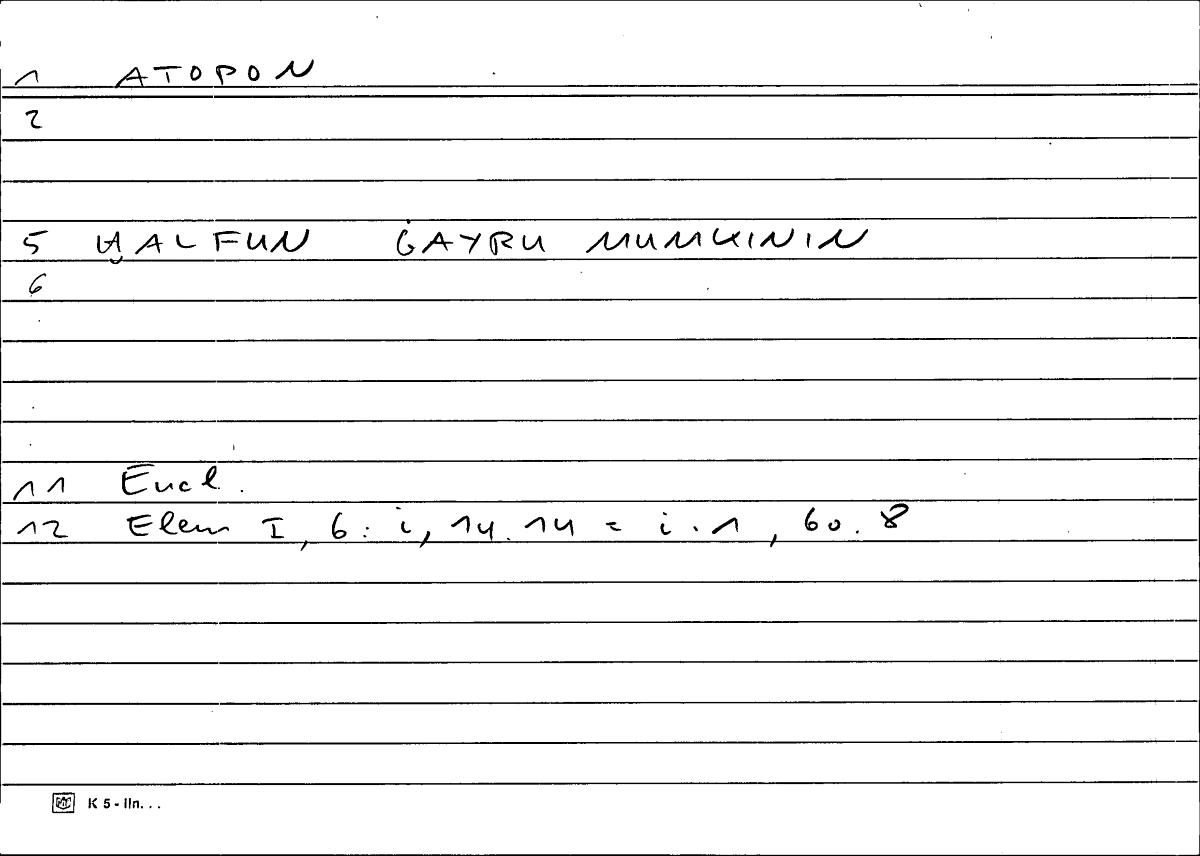 1 ATOPON
2
5 ḪALFUN ĠAYRU MUMKININ
6
11 Eucl.
12 Elem I, 6: i, 14.14 = i.1, 60.8
K 5 - lin...